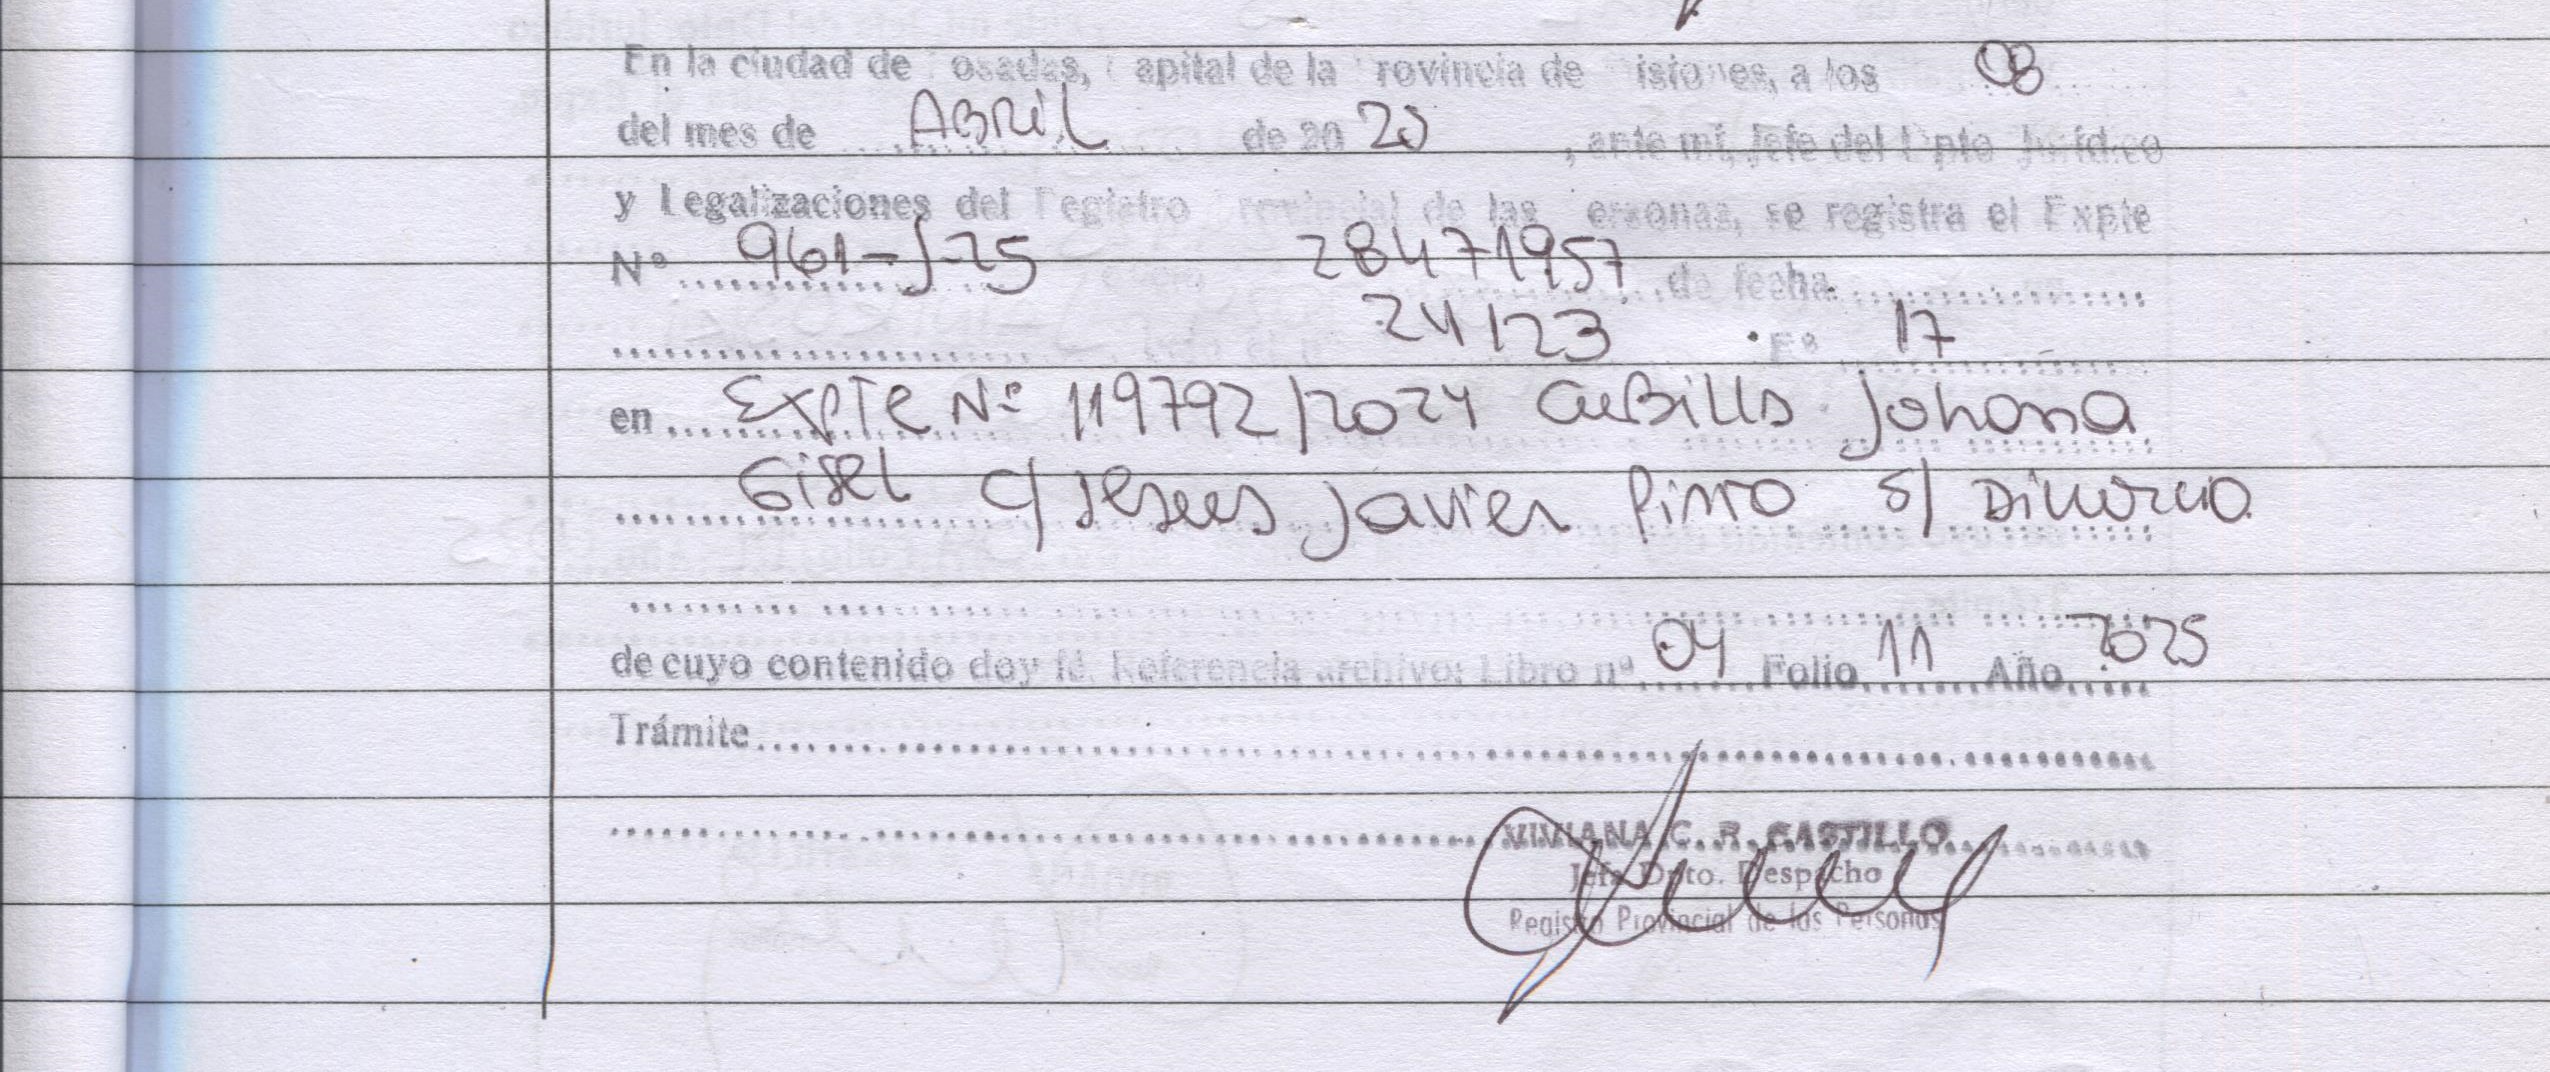 En la ciudad de osadas, apital de la rovincia de isiones, a los 08
del mes de ABRIL de 20 25, ante mí, Jefe del Dpto Jurídico
y Legalizaciones del Registro Provincial de las ersonas, se registra el Expte
N° 961-J-25 28471957 de fecha
24123 F° 17
en Expte N° 119792/2024 CUBILLS Johana
Gisel c/ Jesus Javier Pinto s/ Divorcio
de cuyo contenido doy fé. Referencia archivo: Libro n° 04 Folio 11 Año 2025
Trámite
VIVIANA C. R. CASTILLO
Jefa Dpto. Despacho
Registro Provincial de las Personas